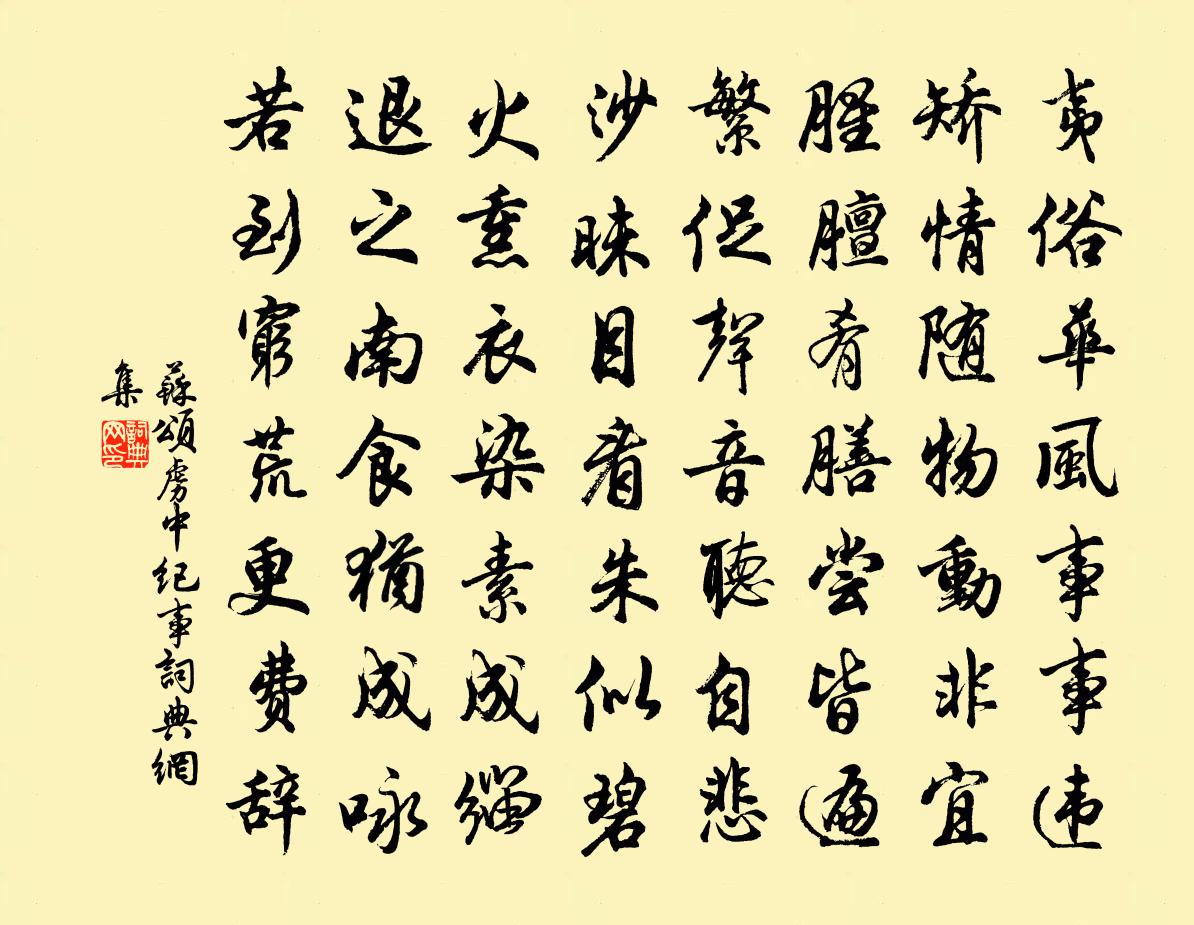 夷俗華風事事違
矫情随物動非宜
腥膻肴膳尝皆遍
繁促聲音聽自悲
沙昧目看朱似碧
火熏衣染素成緇
退之南食猶成咏
若到窮荒更費辞
蘇頌虜中紀事詞典網
集
詞典
网印